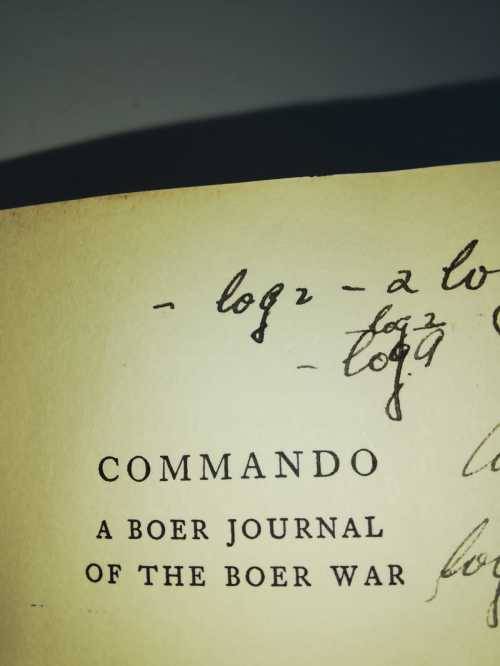 - log 2 - 2 lo
log 2
- log 9
COMMANDO
A BOER JOURNAL
OF THE BOER WAR
log